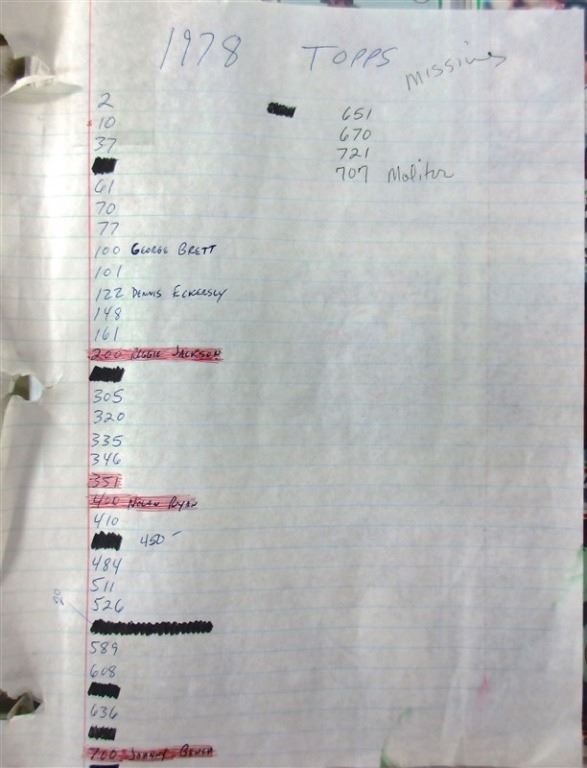 1978 TOPPS missing
2
10
37
61
70
77
100 GEORGE BRETT
101
122 DENNIS ECKERSLY
148
161
200 REGGIE JACKSON
305
320
335
346
351
400 NOLAN RYAN
410
450
484
511
526
20
589
608
636
700 JOHNNY BENCH
651
670
721
707 Molitor